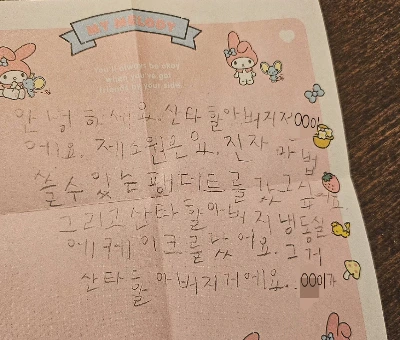 MY MELODY
You'll always be okay
when you've got
friends by your side
안녕하세요. 산타할아버지저 00이
에요. 제소원은요. 진짜 마법
쓸수있는 팬더트를 갖고시
퍼요.
그리고 산타할아버지 냉동실
에케이크를 났어요. 그거
산타할아버지거에요. 00이가